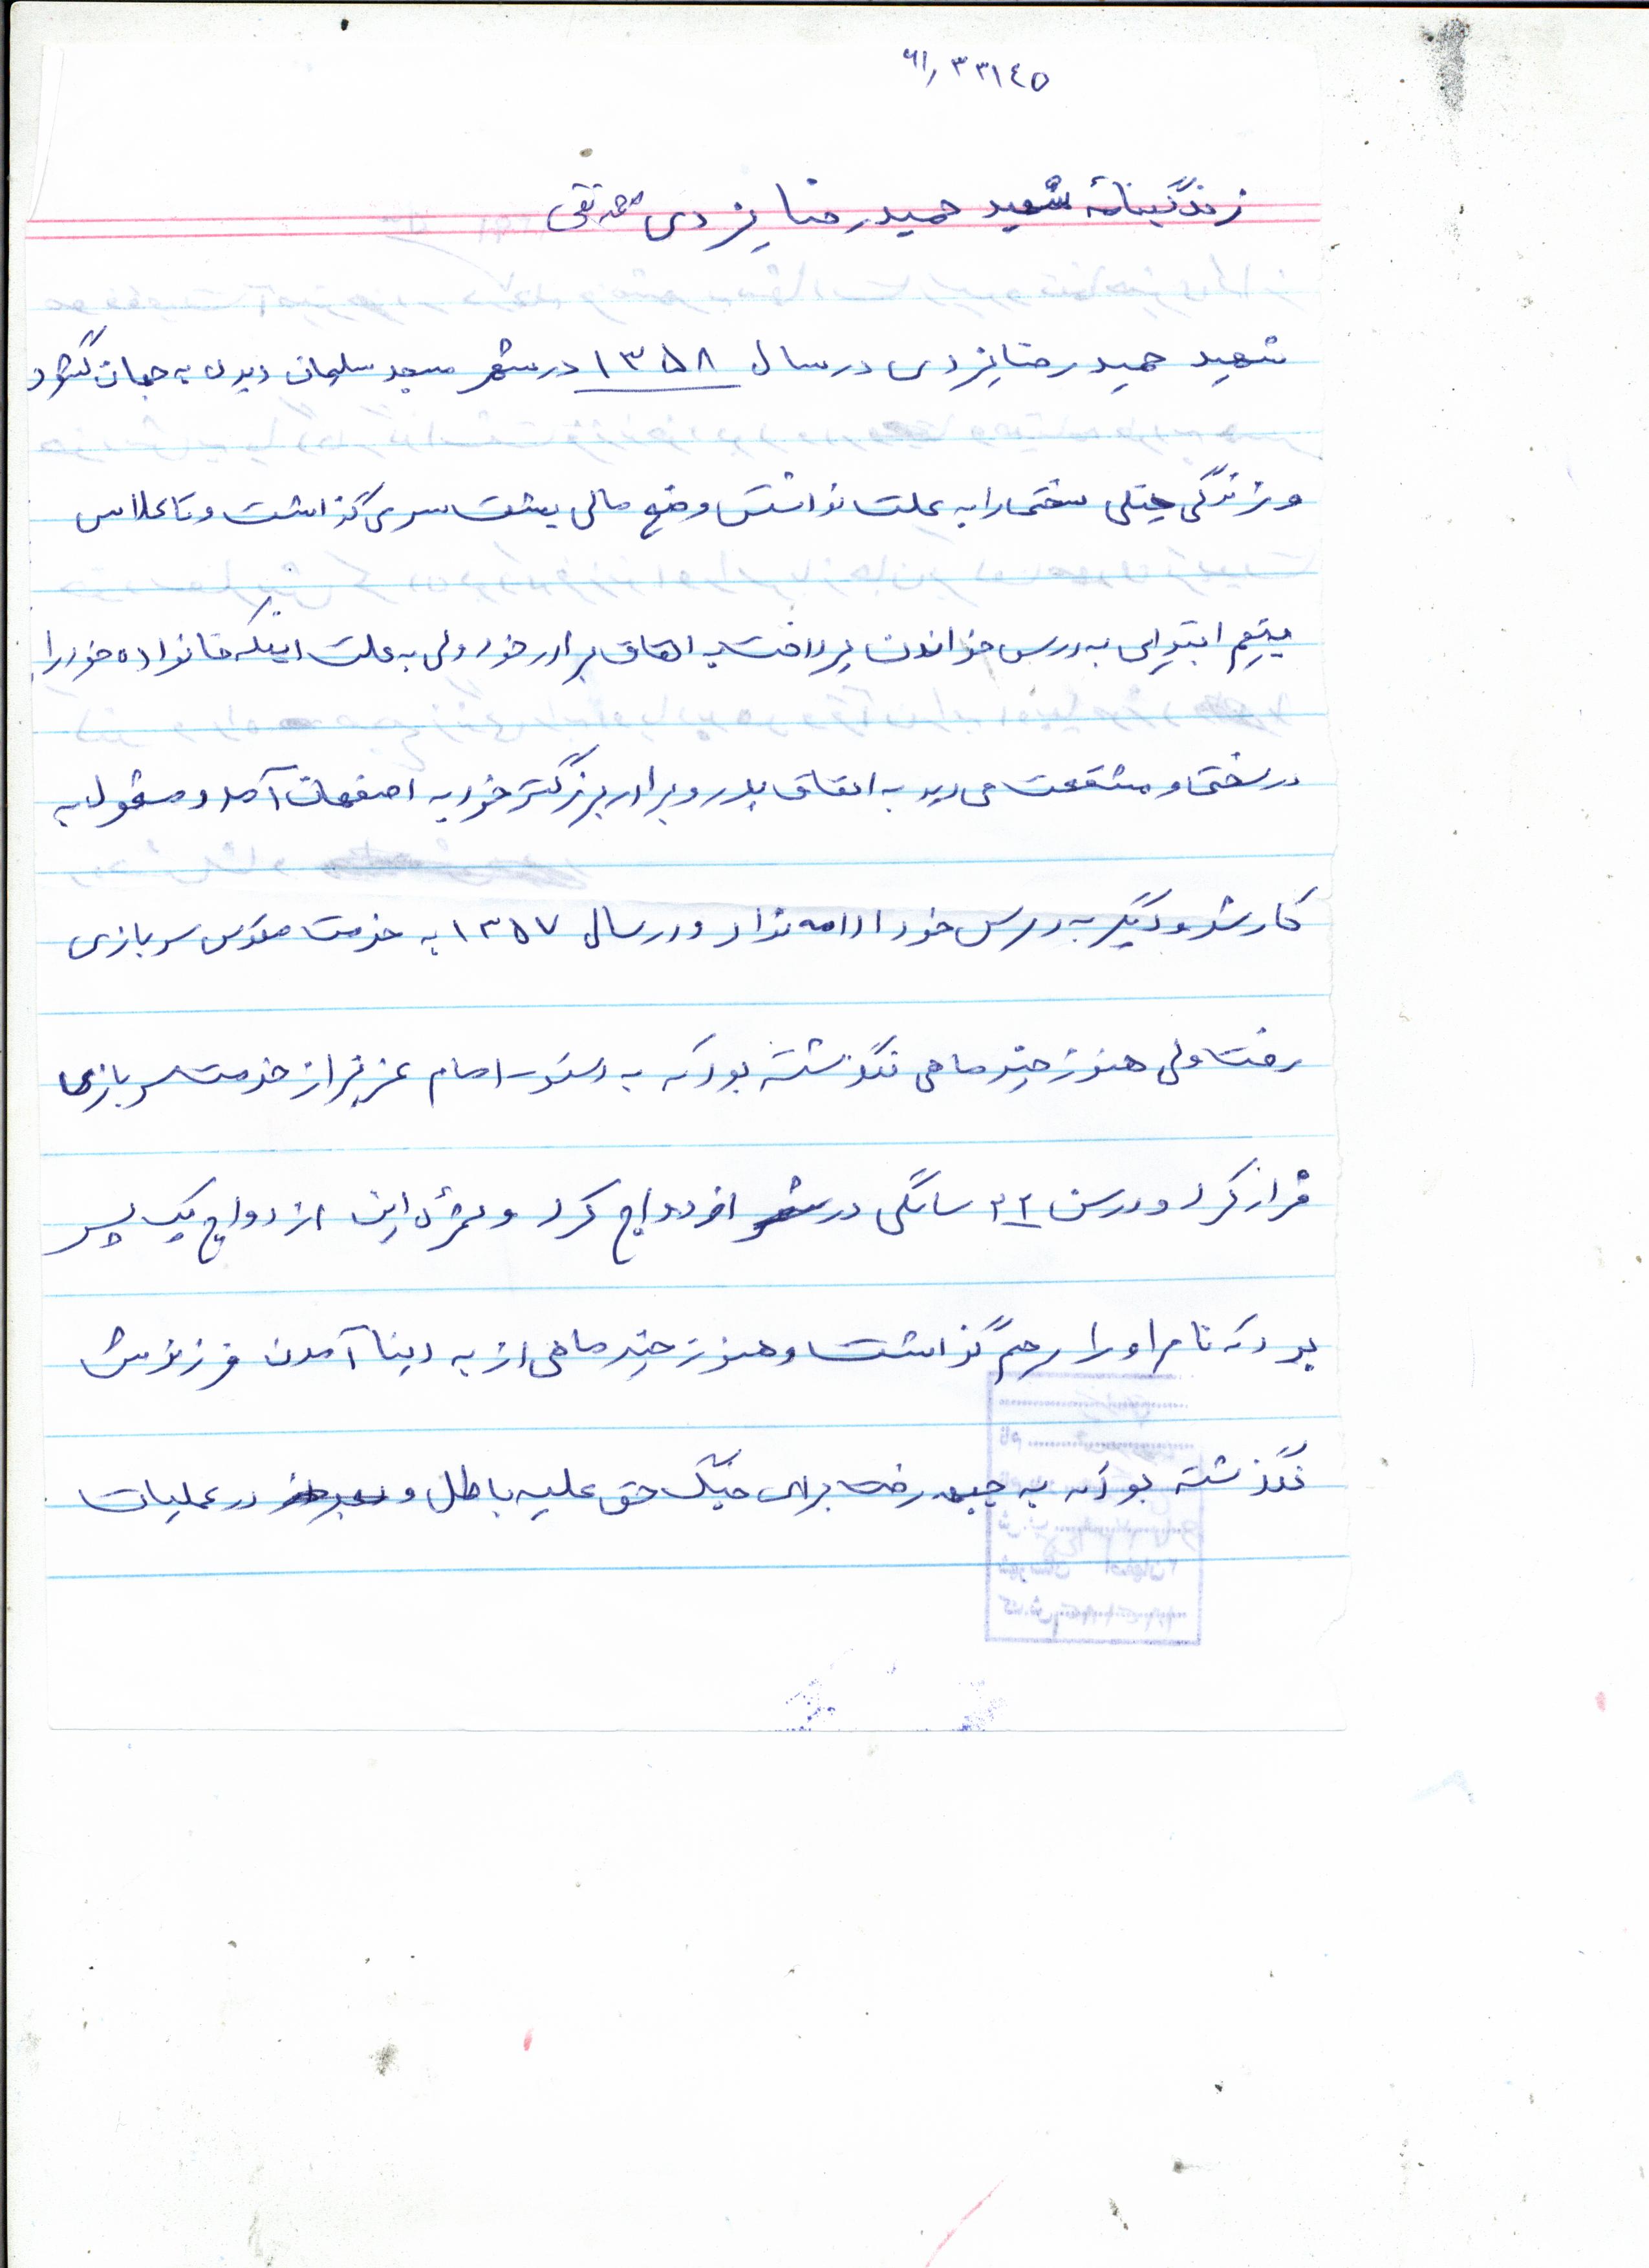 ۶۱,۳۳۱۴۵
زندگینامهٔ شهید حمیدرضا یزدی محمدتقی
شهید حمیدرضا یزدی در سال ۱۳۵۸ در شهر مسجد سلیمان دیده به جهان گشود
و زندگی خیلی سختی را به علت نداشتن وضع مالی پشت سر می گذاشت و تا کلاس
پنجم ابتدایی به درس خواندن پرداخت به اتفاق برادر خود ولی به علت اینکه خانواده خود را
در سختی و مشقت می دید به اتفاق پدر و برادر بزرگتر خود به اصفهان آمد و مشغول به
کار شد و دیگر به درس خود ادامه نداد و در سال ۱۳۵۷ به خدمت مقدس سربازی
رفت ولی هنوز چند ماهی نگذشته بود که به دستور امام عزیز از خدمت سربازی
فرار کرد و در سن ۲۲ سالگی در شهر ازدواج کرد و ثمرهٔ این ازدواج یک پسر
بود که نام او را رحیم گذاشت و هنوز چند ماهی از به دنیا آمدن فرزندش
نگذشته بود که به جبهه رفت برای جنگ حق علیه باطل و در عملیات